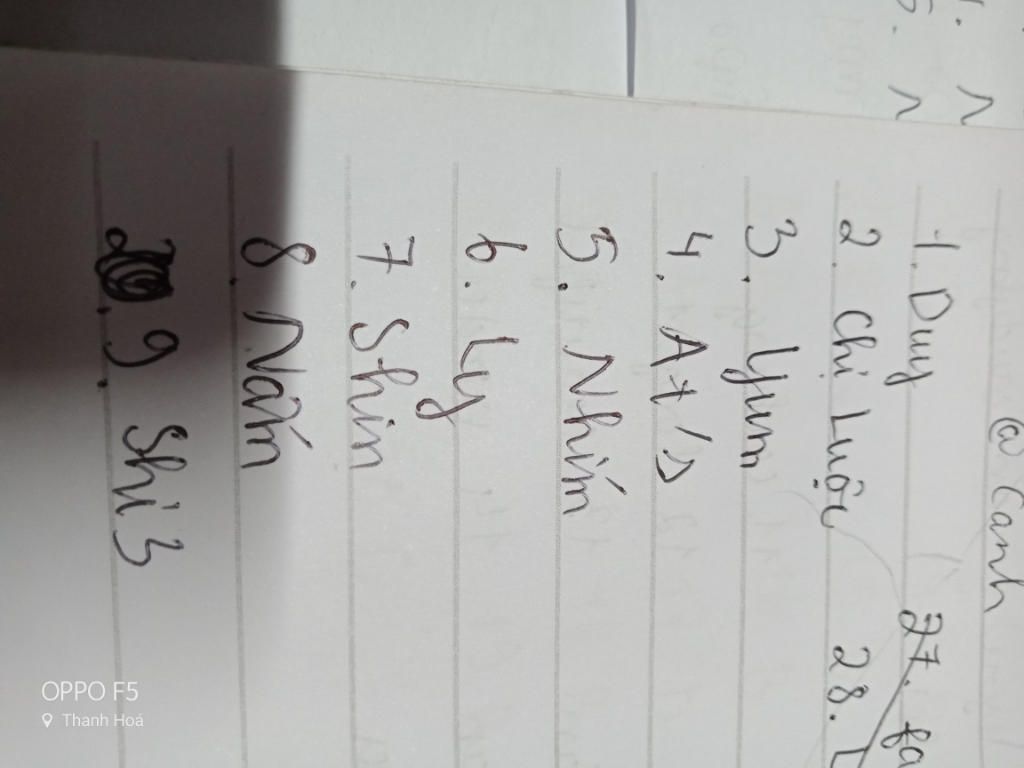 @ Canh
1. Duy 27. fa
2. Chị Luộc 28.
3. Yum
4. A+
5. Nhím
6. Ly
7. Shin
8. Nấm
9. Shi 3
OPPO F5
Thanh Hoá